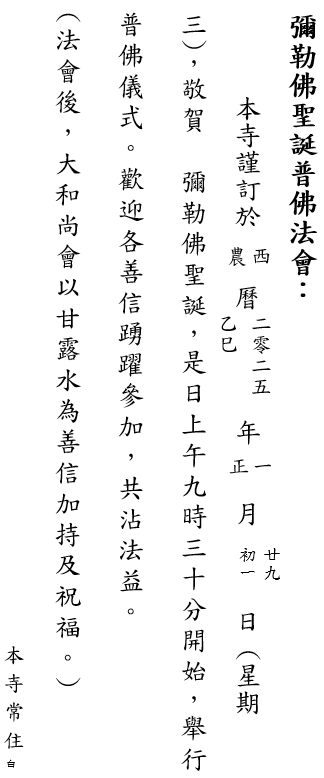 彌勒佛聖誕普佛法會：
本寺謹訂於 西農 曆 二零二五乙巳 年 一正 月 廿九初一 日（星期
三），敬賀 彌勒佛聖誕，是日上午九時三十分開始，舉行
普佛儀式。歡迎各善信踴躍參加，共沾法益。
（法會後，大和尚會以甘露水為善信加持及祝福。）
本寺常住 白